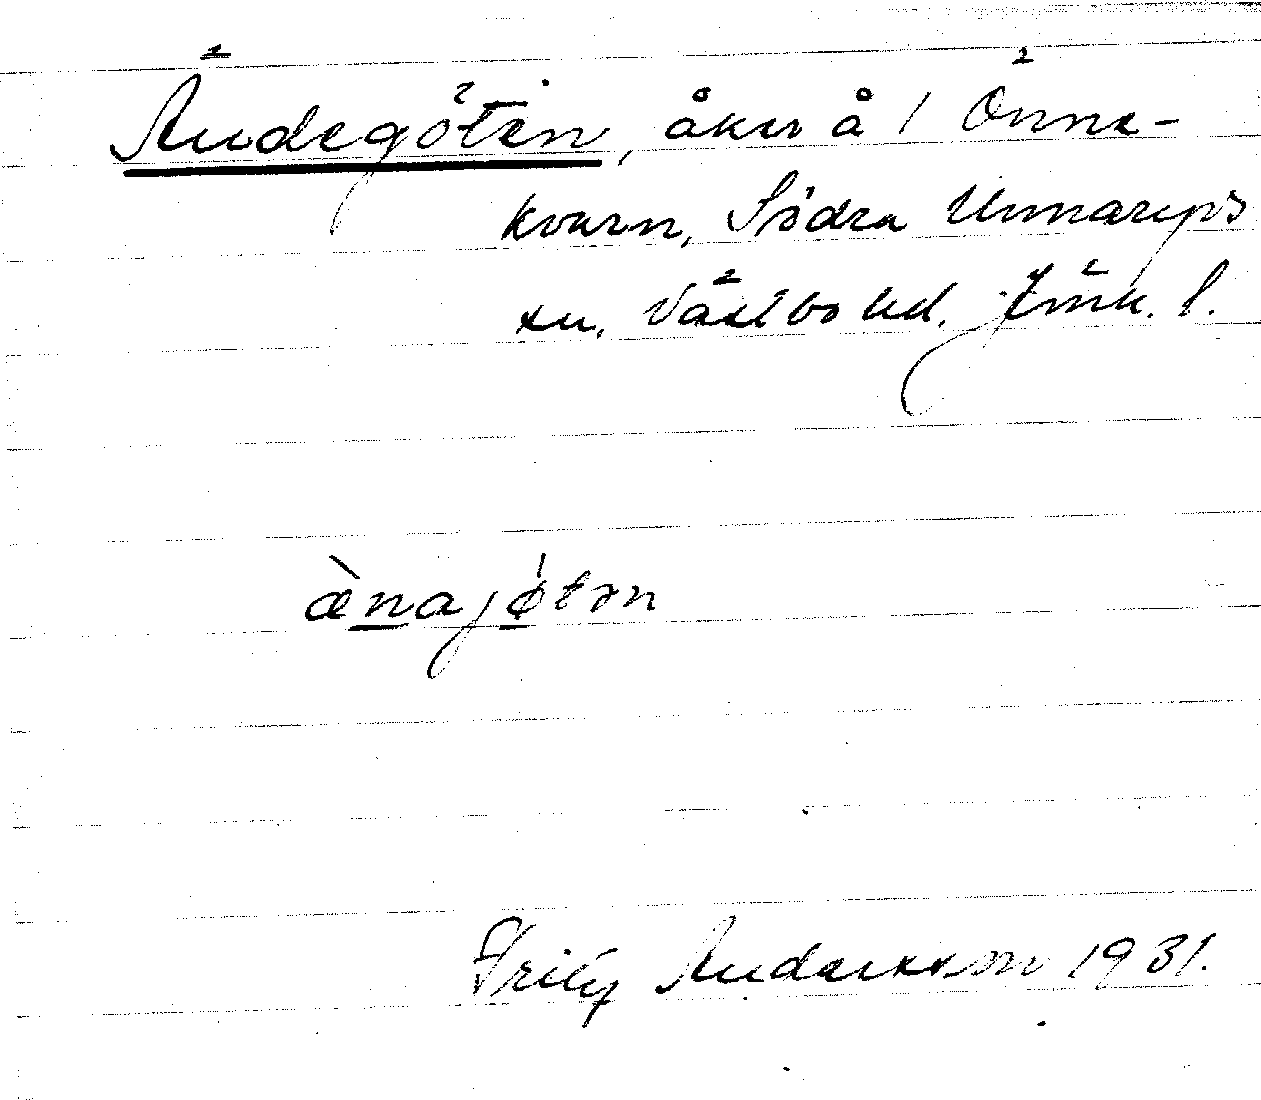 Ändegöten, åker å 1 Önne-
kvarn, Södra Unnaryps
sn, Västbo hd. Jönk. l.
æ̀najǿtən
Fritz Andersson 1931.